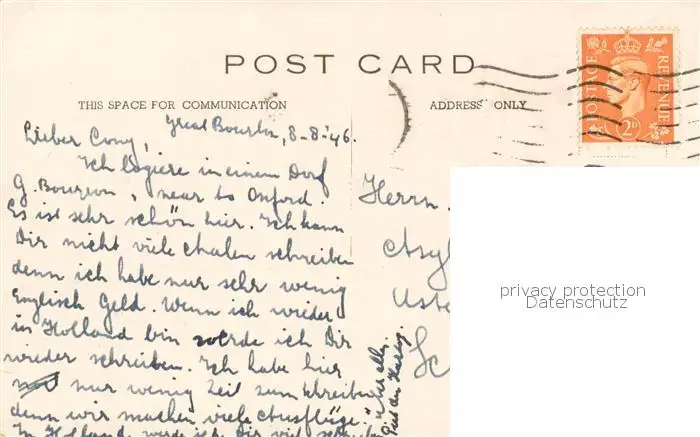 POST CARD
THIS SPACE FOR COMMUNICATION
ADDRESS ONLY
POSTAGE
REVENUE
2D
Great Bourton, 8-8-'46.
Lieber Cony,
Ich logiere in einem Dorf
G. Bourton, near to Oxford.
Es ist sehr schön hier. Ich kann
Dir nicht viele schreiben
denn ich habe nur sehr wenig
Englisch Geld. Wenn ich wieder
in Holland bin werde ich Dir
wieder schreiben. Ich habe hier
nur wenig Zeit zum schreiben
denn wir machen viele Ausflüge.
In Holland werde ich Dir viel schreiben
über alles.
Herrn
Asyl
Uste
privacy protection
Datenschutz